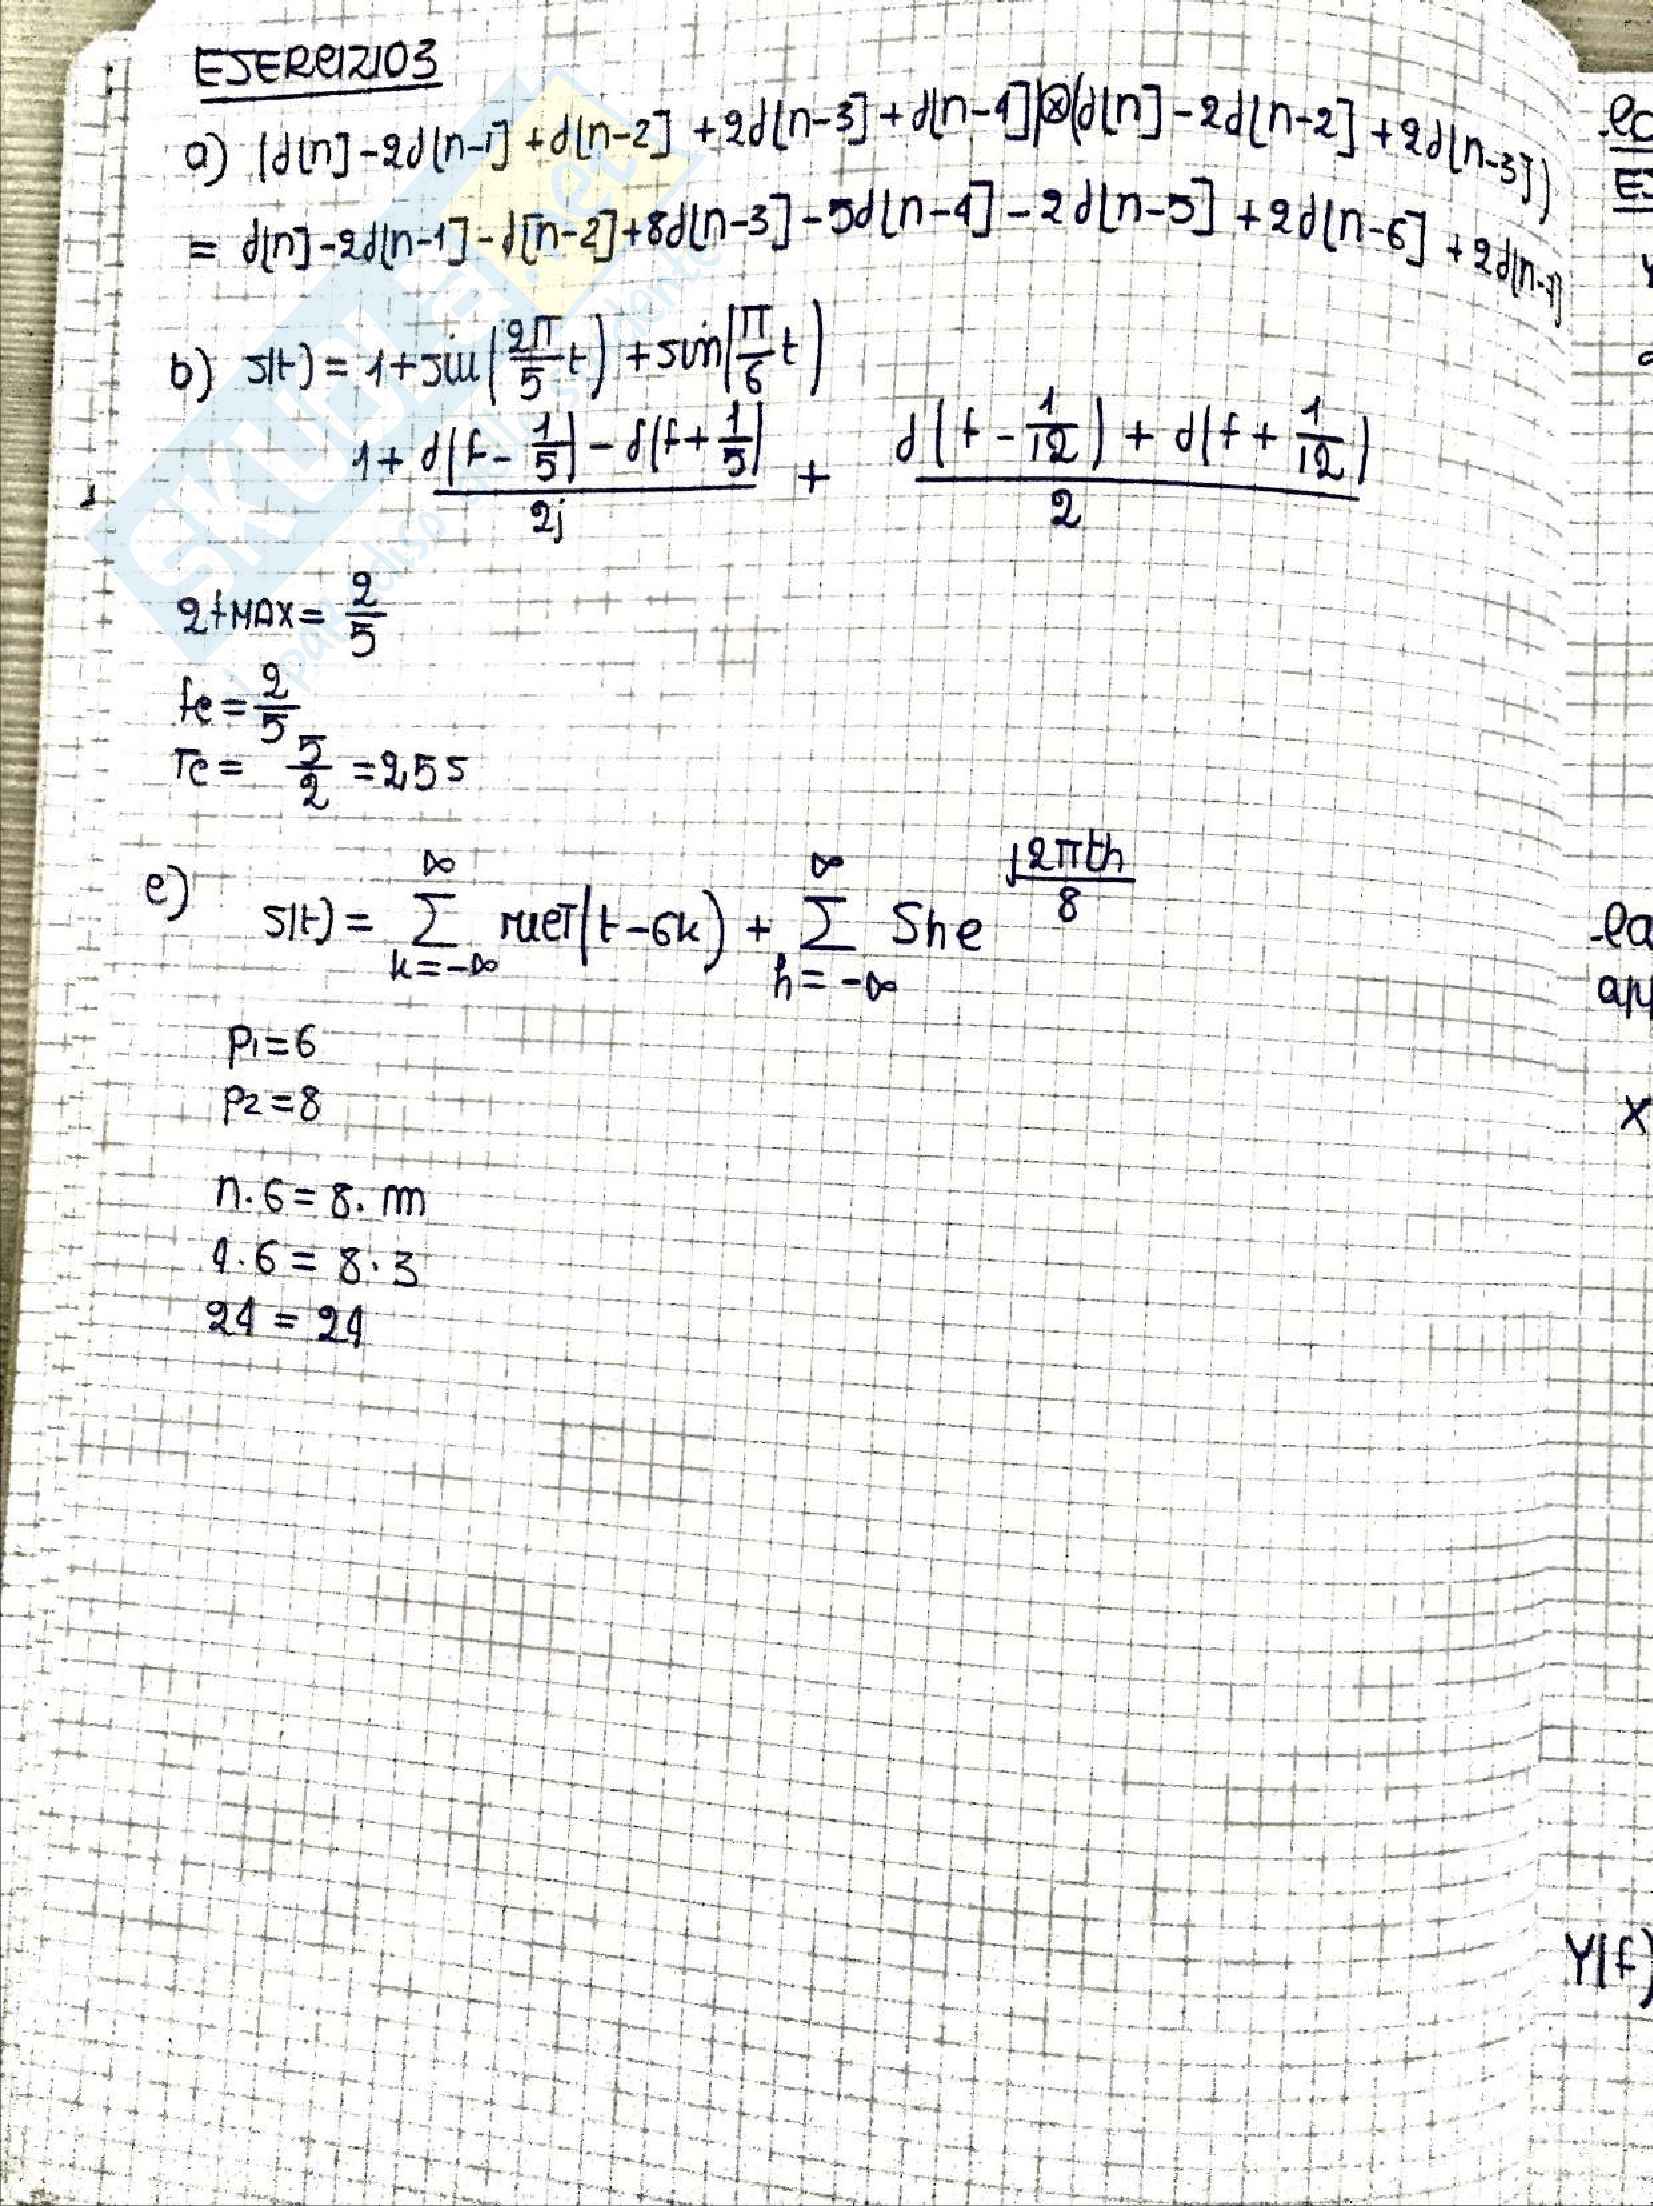 ESERCIZIO 3
a) (d[n]-2d[n-1]+d[n-2]+2d[n-3]+d[n-4])⊗(d[n]-2d[n-2]+2d[n-3])
= d[n]-2d[n-1]-d[n-2]+8d[n-3]-5d[n-4]-2d[n-5]+2d[n-6]+2d[n-7]
b) s(t) = 1+sin(2π/5 t)+sin(π/6 t)
1+ d(f-1/5)-d(f+1/5) / 2j + d(f-1/12)+d(f+1/12) / 2
2fMAX = 2/5
fc = 2/5
Tc = 5/2 = 2,5 s
c) s(t) = ∑ k=-∞ ∞ rect(t-6k) + ∑ h=-∞ ∞ Sh e j2πth/8
P1=6
P2=8
n·6=8·m
4·6=8·3
24=24
SKUOLA.net
Y(f)
X